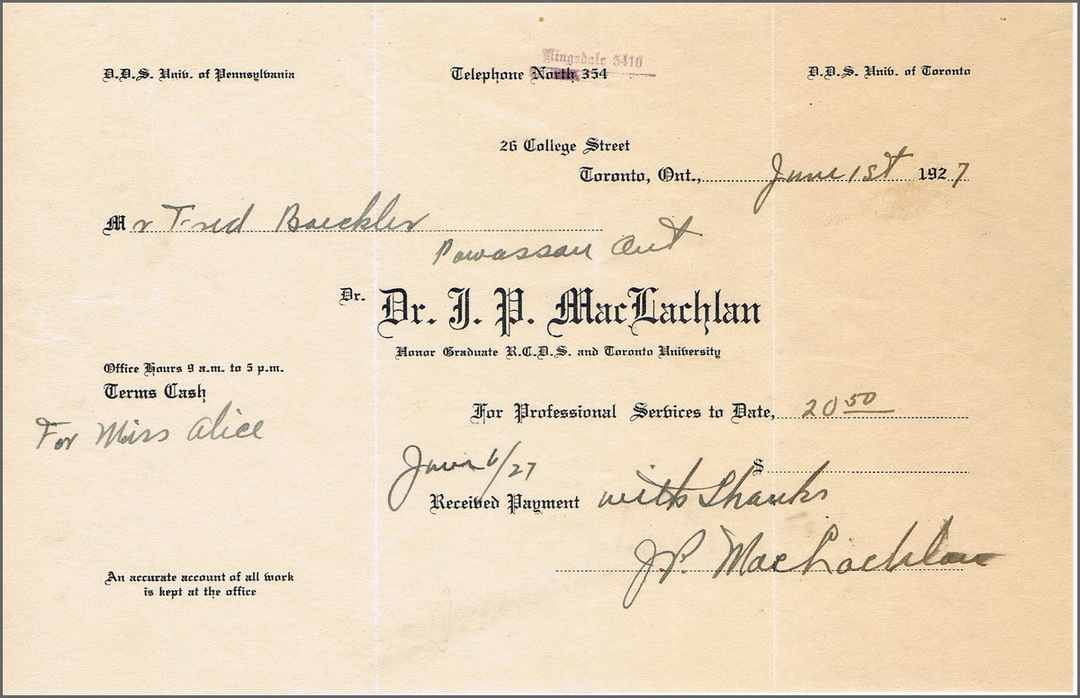 D.D.S. Univ. of Pennsylvania
Kingsdale 5410
Telephone North 354
D.D.S. Univ. of Toronto
26 College Street
Toronto, Ont., June 1st 1927
Mr Fred Boeckler
Powassan Ont
Dr. Dr. J. P. MacLachlan
Honor Graduate R.C.D.S. and Toronto University
Office Hours 9 a.m. to 5 p.m.
Terms Cash
For Miss Alice
For Professional Services to Date, 20 50
$
June 6/27
Received Payment with thanks
J.P. MacLachlan
An accurate account of all work
is kept at the office